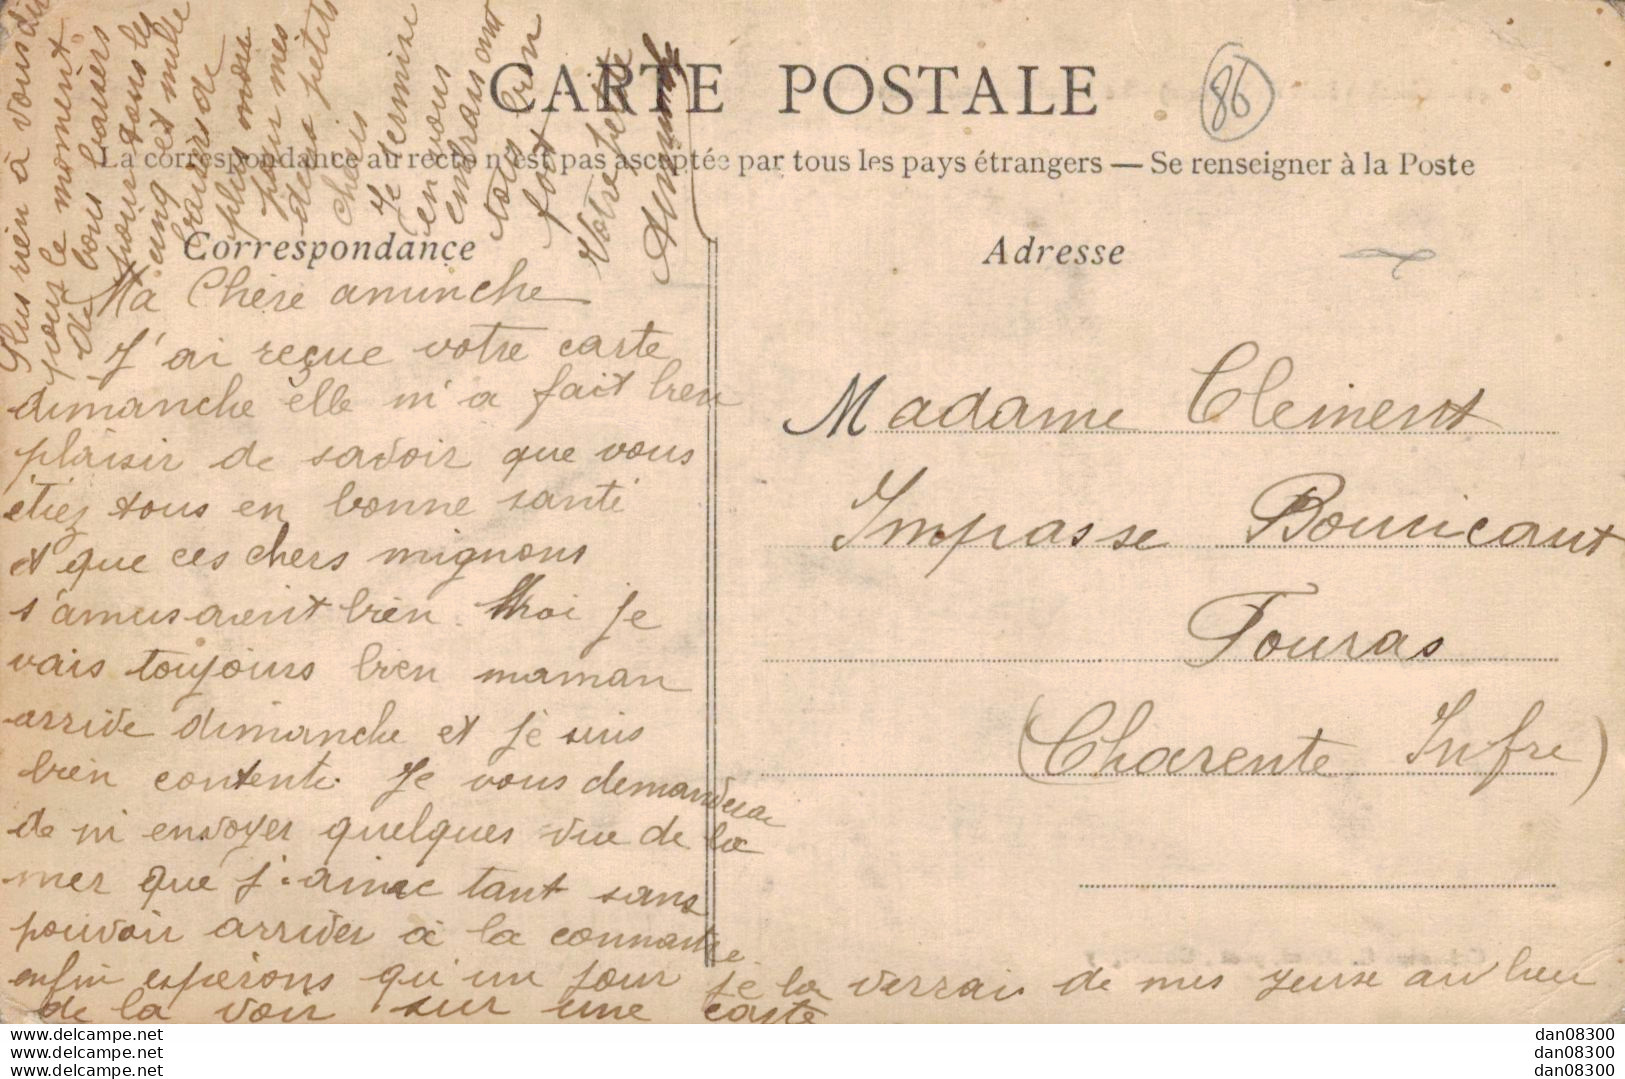 CARTE POSTALE
86
La correspondance au recto n'est pas acceptée par tous les pays étrangers — Se renseigner à la Poste
Correspondance
Adresse
Ma Chère anninche
J'ai reçue votre carte
dimanche elle m'a fait bien
plaisir de savoir que vous
étiez tous en bonne santé
et que ces chers mignons
s'amusaient bien. Moi je
vais toujours bien maman
arrive dimanche et je suis
bien contente. Je vous demanderai
de m envoyer quelques vue de la
mer que j'aime tant sans
pouvoir arriver à la connaitre
enfin espérons qu'un jour je la verrai de mes yeuse au lieu
de la voir sur une carte
Plus rien à vous dire
pour le moment
de bons baisers
pour tous les
cinq et mille
baisers de
plus
pour mes
deux petits
chéris
Je termine
en vous
embrassant
tous bien
fort
Votre petite
Madame Clement
Impasse Bouricaut
Fouras
(Charente Infre)
dan08300
dan08300
dan08300
www.delcampe.net
www.delcampe.net
www.delcampe.net